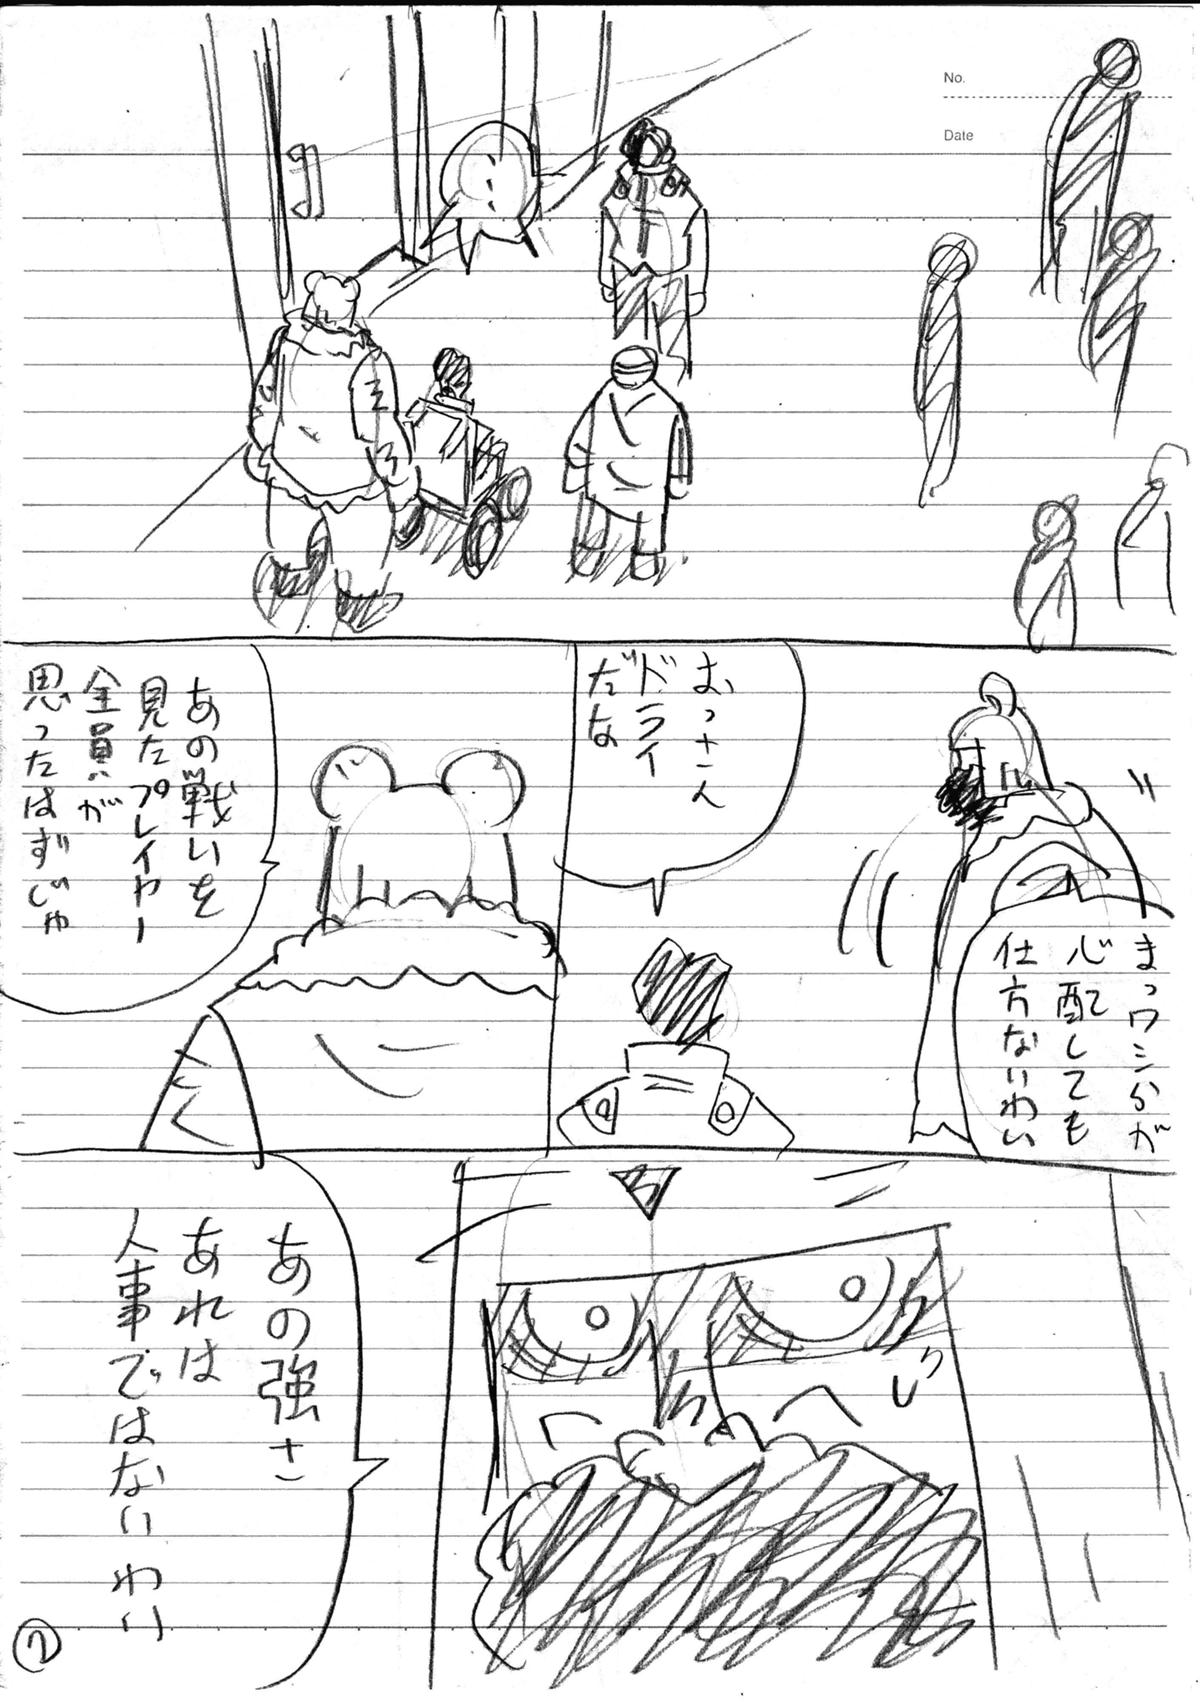 No.
Date
まっワシらが
心配しても
仕方ないわい
おっさん
ドライ
だな
あの戦いを
見たプレイヤー
全員が
思ったはずじゃ
あの強さ
あれは
人事ではないわい